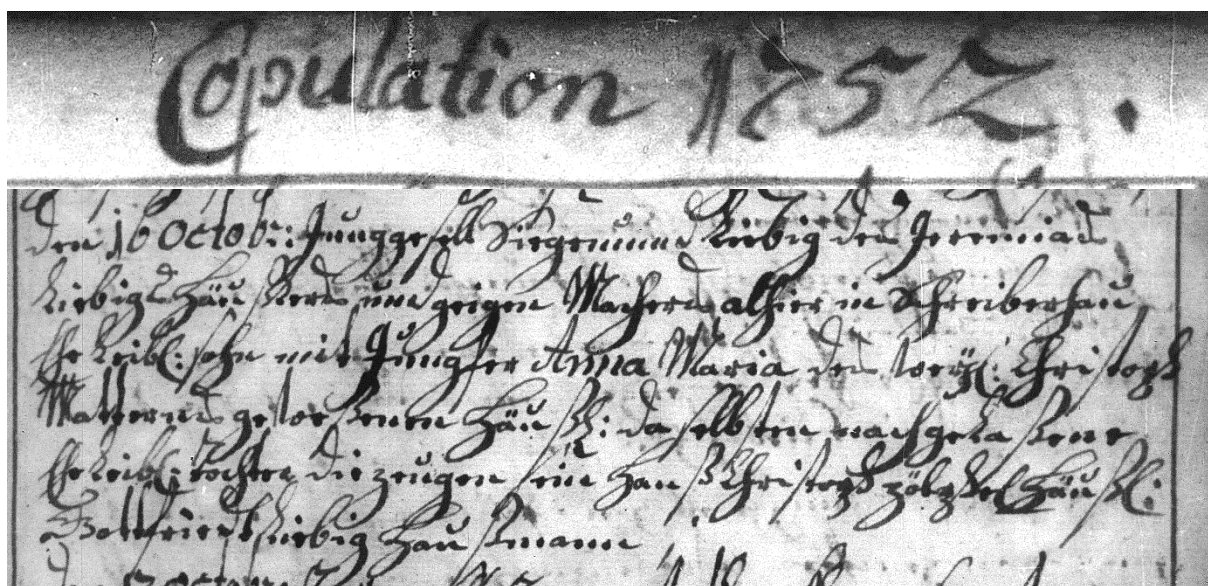 Copulation 1752.
den 16 Octob: Junggesell Siegemund Liebig des Jeremias
Liebigs Häußlers und geigen Machers alhier in Schreiberhau
Ehe Leibl: sohn mit Jungfer Anna Maria des weyl: Christoph
Matterns gewesenen Häußl: daselbsten nachgelassene
Ehe Leibl: tochter die zeugen sein Hanß Christoph Häußl:
Gottfriedt Liebig Haußmann